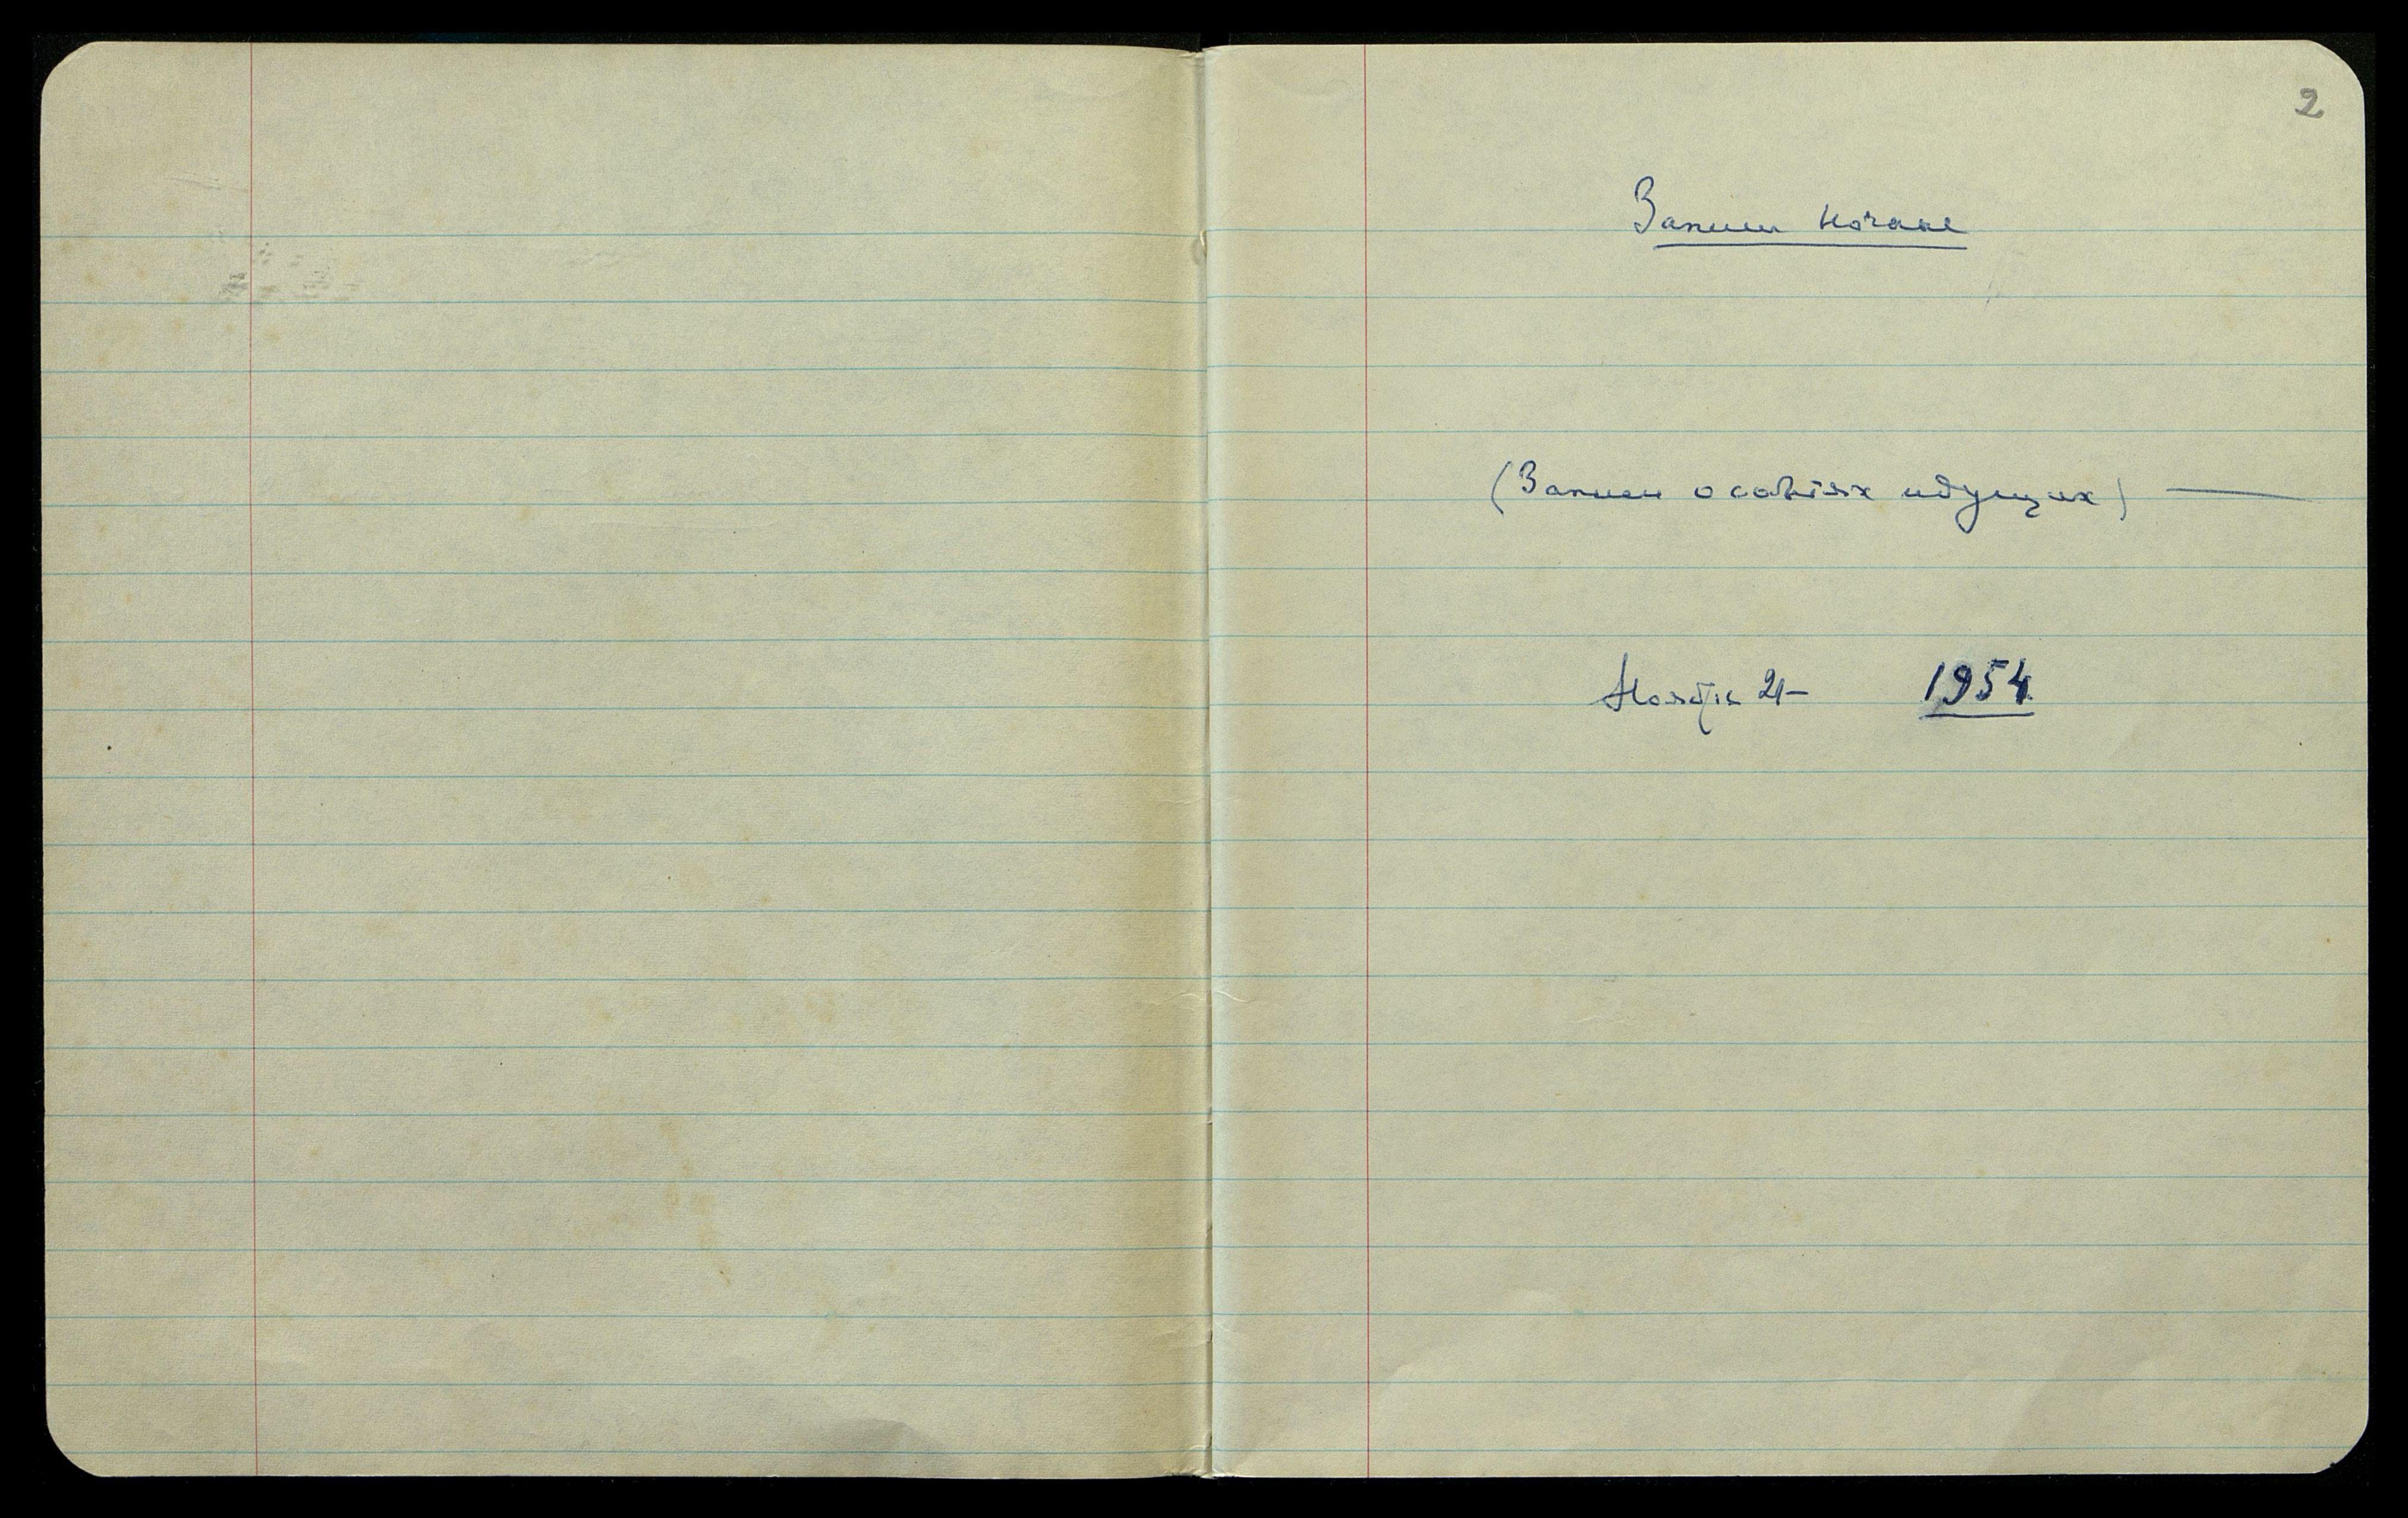 2
Записи ночные
(Записи о событіях идущих) —
Ноябрь 21 — 1954